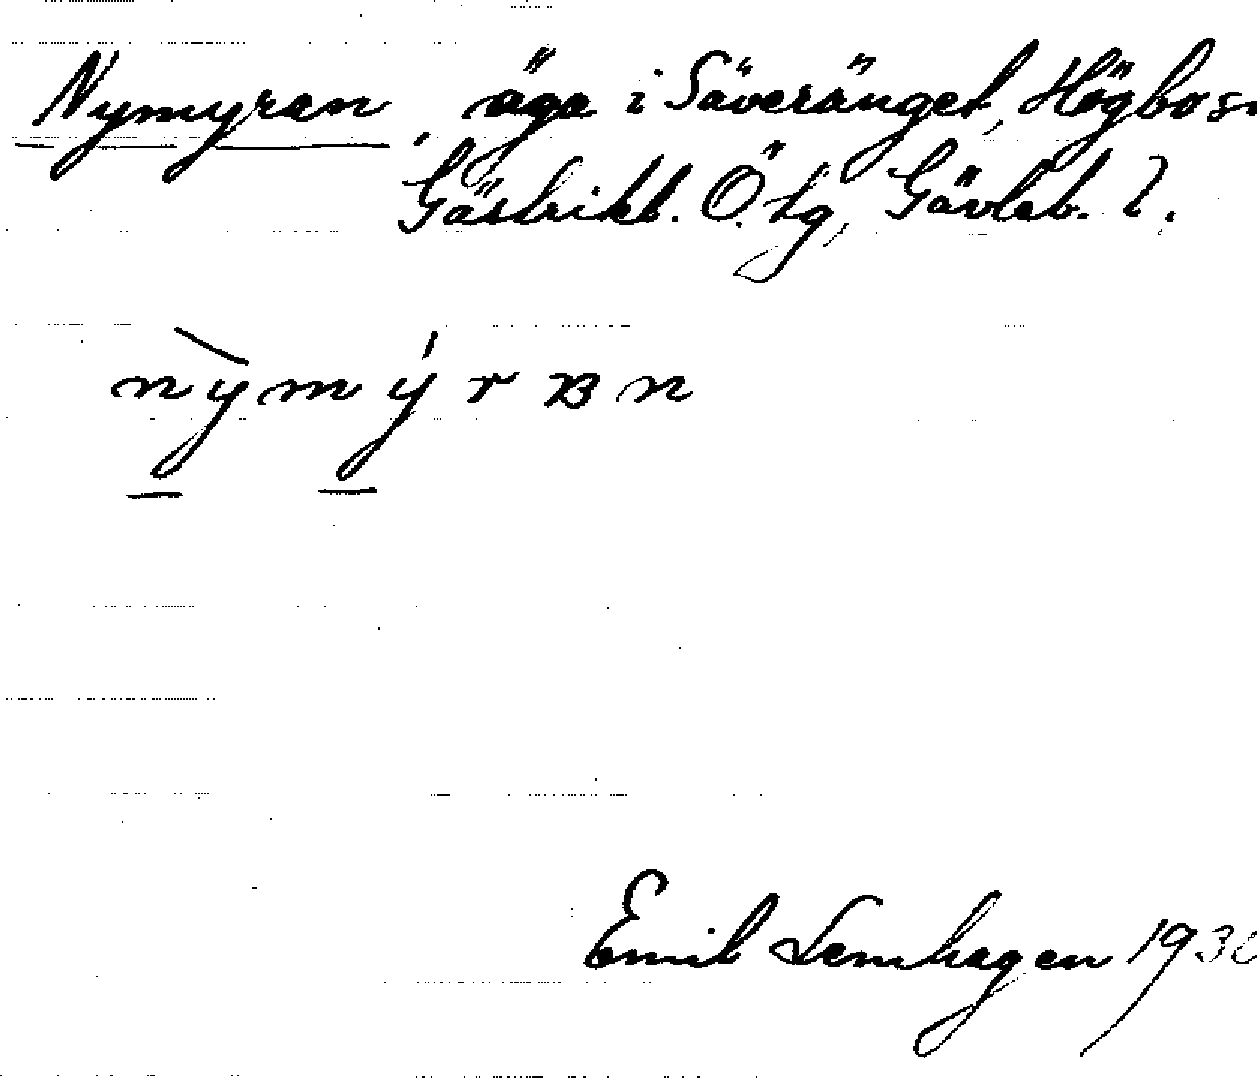 Nymyran, äga i Säveränget, Högbo sn
Gästrikl. Ö. tg, Gävleb. l.
nỳmýrʙn
Emil Lemhagen 193